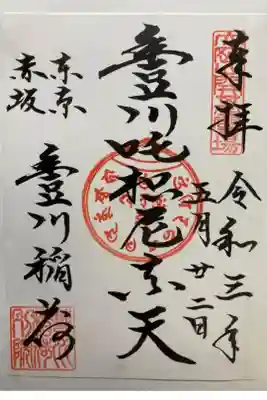 奉拝
令和三年
五月廿二日
豊川吒枳尼真天
東京
赤坂
豊川稲荷